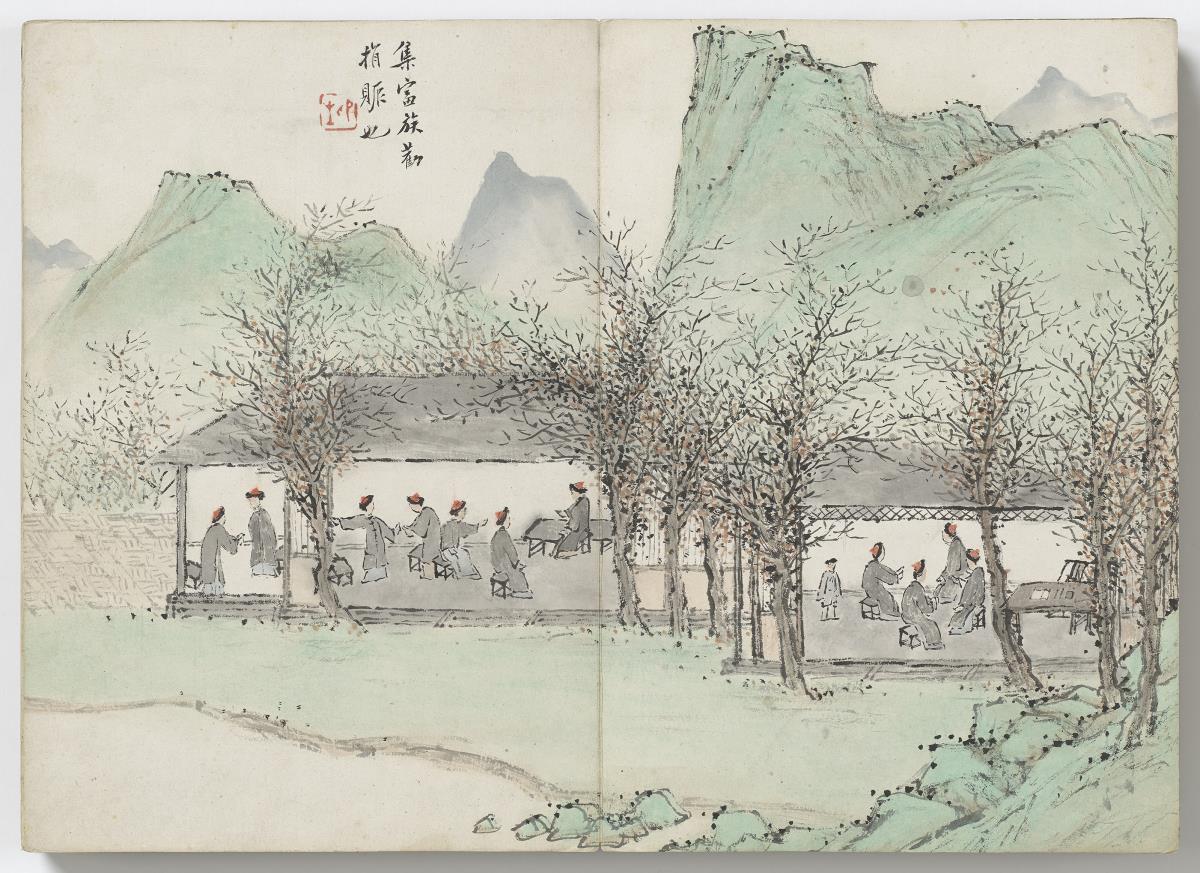 集富族勸
捐賑也